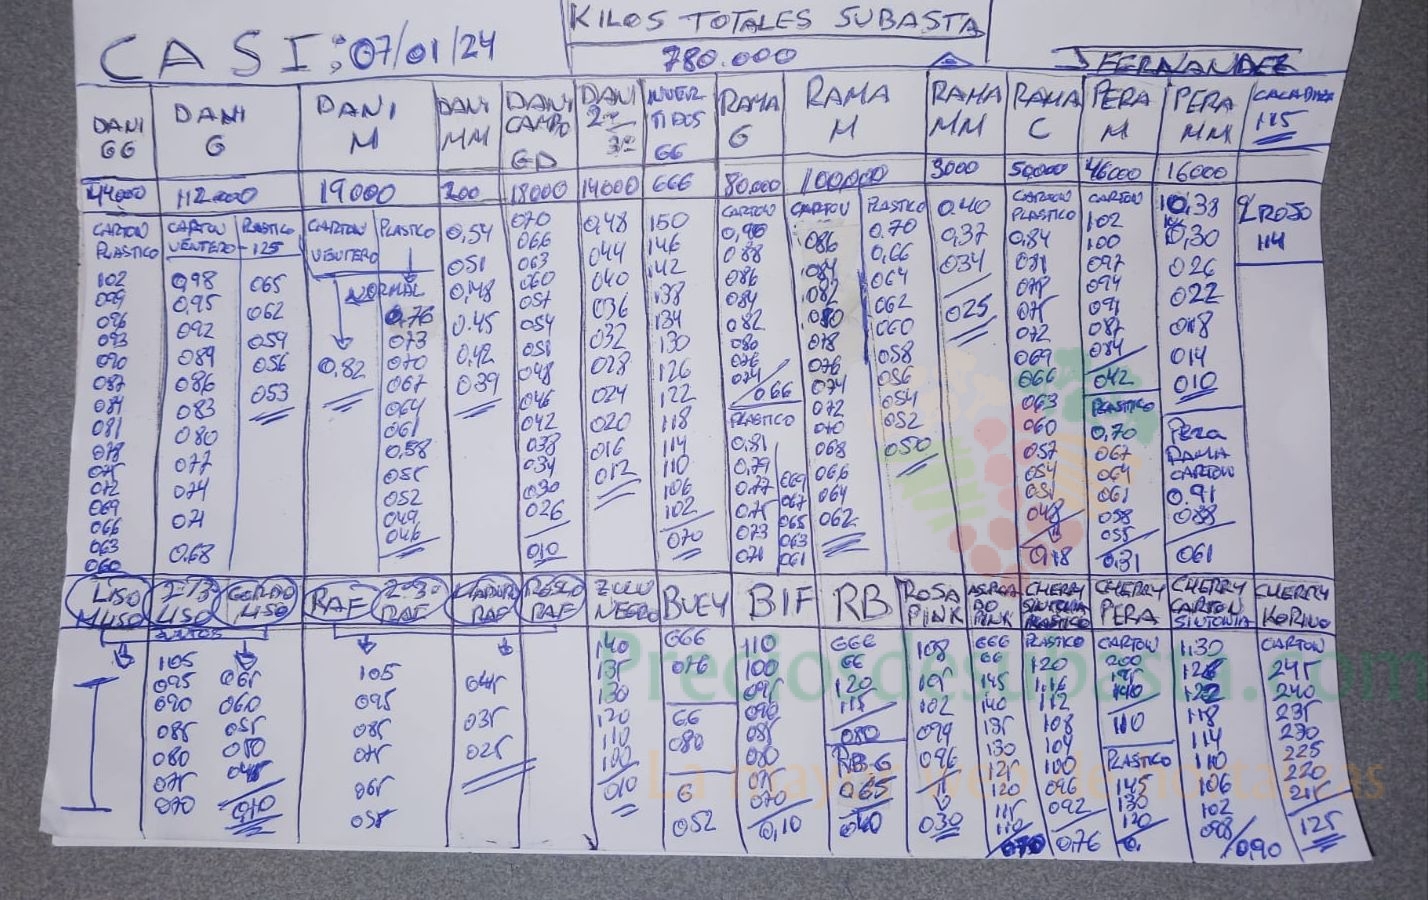 KILOS TOTALES SUBASTA
CASI: 07/01/24
780.000
FERNANDEZ
DANI GG
44000
CARTON
PLASTICO
102
099
096
093
090
087
084
081
078
075
072
069
066
063
060
DANI G
112.000
CARTON
VENTERO
098
0,95
092
089
086
083
080
077
074
071
0.68
PLASTICO
125
065
062
059
056
053
DANI M
19000
CARTON
VENTERO
0,82
PLASTICO
NORMAL
0,76
073
070
067
064
061
0,58
055
052
049
046
DANI MM
200
0,54
051
0,48
0.45
0,42
039
DANI CAMPO GD
18000
070
066
063
060
057
054
051
048
046
042
038
034
030
026
010
DANI 2ª 3ª
14000
0,48
044
040
036
032
028
024
020
016
012
INVERTIDOS
GG
666
150
146
142
138
134
130
126
122
118
114
110
106
102
070
RAMA G
80.000
CARTON
0,90
088
086
084
082
080
076
074
066
PLASTICO
0,81
0,79
0.77
0,75
073
071
069
067
065
063
061
RAMA M
100000
CARTON
086
084
082
080
078
076
074
072
070
068
066
064
062
PLASTICO
0.70
0,66
064
062
060
058
056
054
052
050
RAMA MM
3000
0.40
0,37
034
025
RAMA C
50000
CARTON
PLASTICO
0,84
081
078
075
072
069
066
063
060
057
054
051
048
0,18
PERA M
46000
CARTON
102
100
097
094
091
087
084
042
PLASTICO
0,70
067
064
061
058
055
0,31
PERA MM
16000
0,38
0,30
026
022
018
014
010
PERA
RAMA
CARTON
0.91
088
061
CALABAZA
115
ROJO
114
LISO
MUSO
2ª/3ª
LISO
JUNTOS
105
095
090
085
080
075
070
GORDO
LISO
065
060
055
050
045
010
RAF
2ª-3ª
RAF
105
095
085
075
065
055
MADURO
RAF
ROSCO
RAF
045
035
025
ZULU
NEGRO
140
135
130
120
110
100
010
BUEY
GGG
076
GG
080
G
052
BIF
110
100
095
090
085
080
075
070
0,10
RB
GGG
GG
120
115
080
RB-G
065
060
ROSA
PINK
108
105
102
099
096
030
PINK
GGG
GG
145
140
135
130
125
120
115
110
070
CHERRY
SINTONIA
PLASTICO
PLASTICO
120
1,16
112
108
104
100
096
092
0,76
CHERRY
PERA
CARTON
200
195
140
110
PLASTICO
145
130
120
CHERRY
CARTON
SINTONIA
1.30
126
122
118
114
110
106
102
098
0,90
CHERRY
KORINO
CARTON
245
240
235
230
225
220
215
125
Preciosdesubasta.com
La mayor web de hortalizas